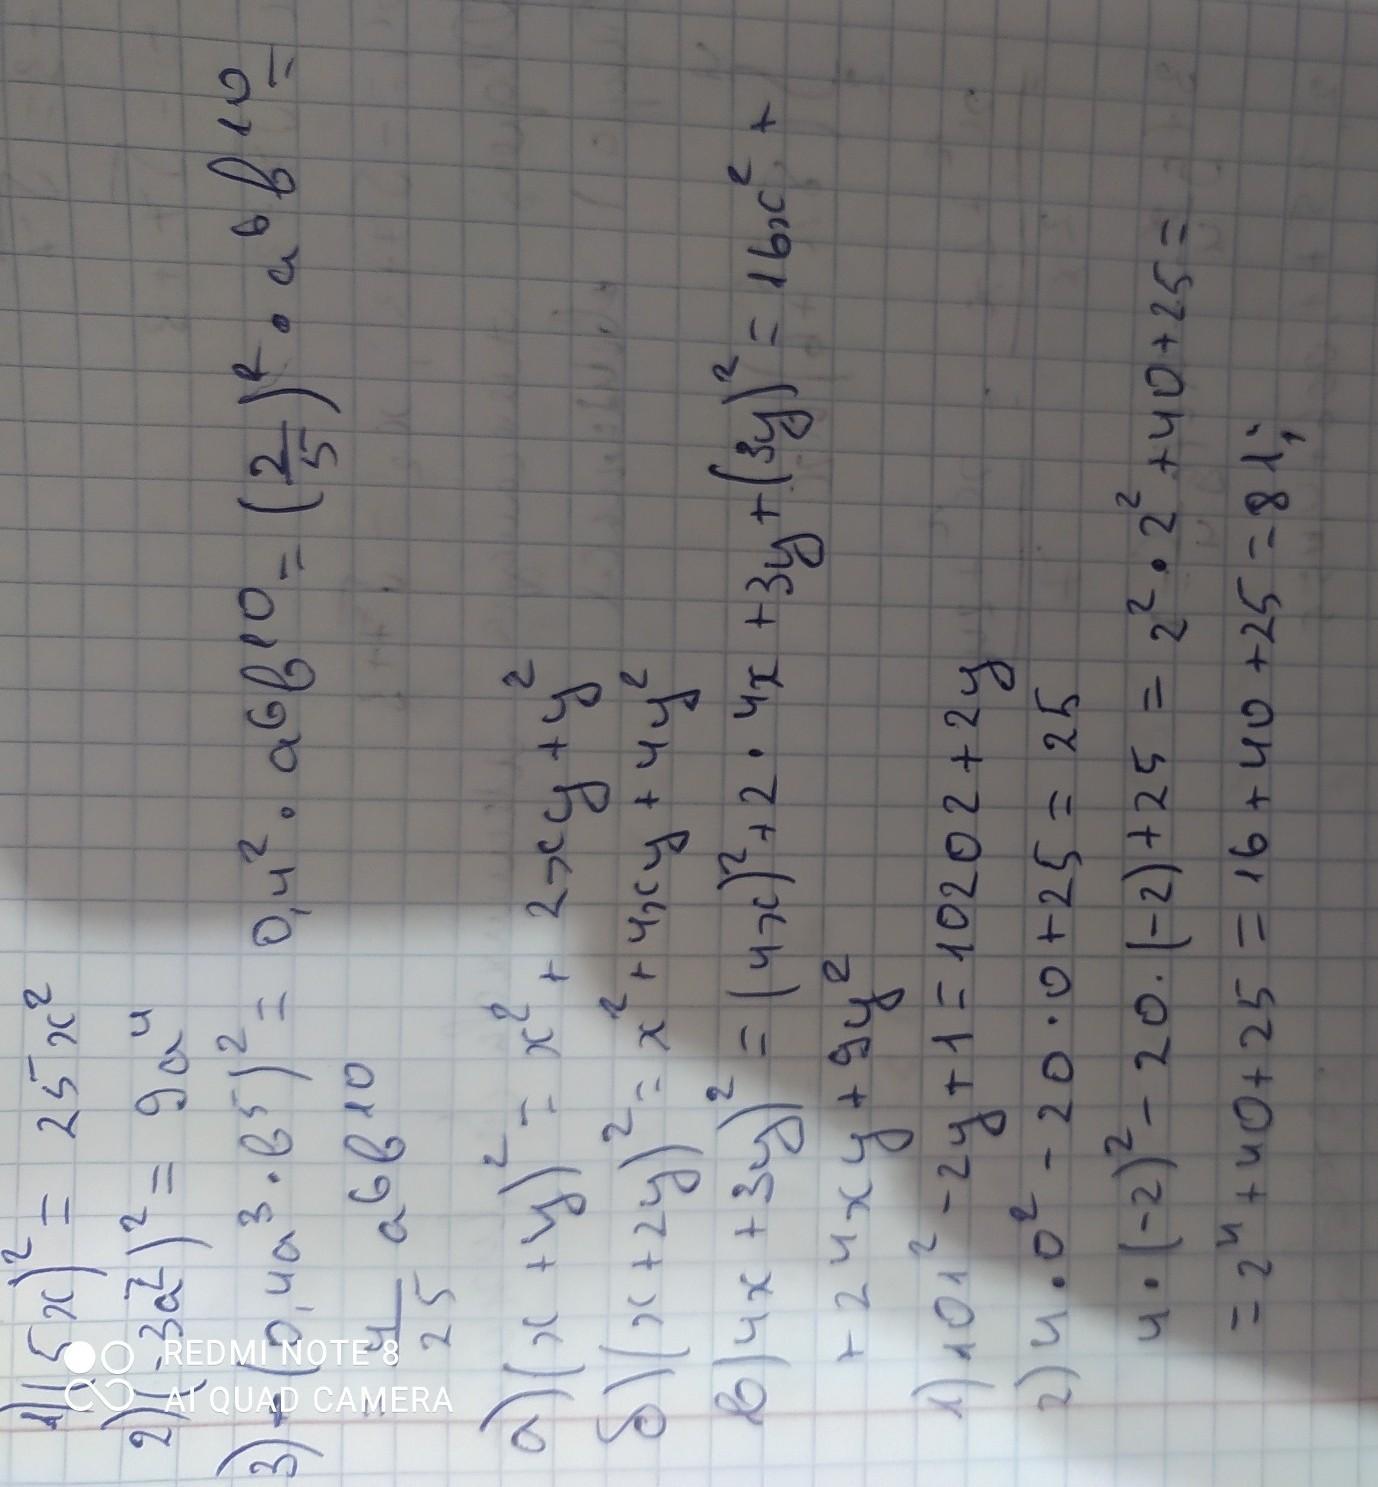 1) (5x)² = 25x²
2) (-3a²)² = 9a⁴
3) + (0,4a³·b⁵)² = 0,4²·a6b10 = (2/5)²·a⁶b10 =
= 4/25 a6b10
а) (x+y)² = x² + 2xy + y²
б) (x+2y)² = x² + 4xy + 4y²
в) 4x+3y)² = (4x)² + 2·4x + 3y + (3y)² = 16x² +
+ 24xy + 9y²
1) 101² - 2y + 1 = 10202 + 2y
2) 4·0² - 20·0 + 25 = 25
4·(-2)² - 20·(-2) + 25 = 2²·2² + 40 + 25 =
= 2⁴ + 40 + 25 = 16 + 40 + 25 = 81;
REDMI NOTE 8
AI QUAD CAMERA